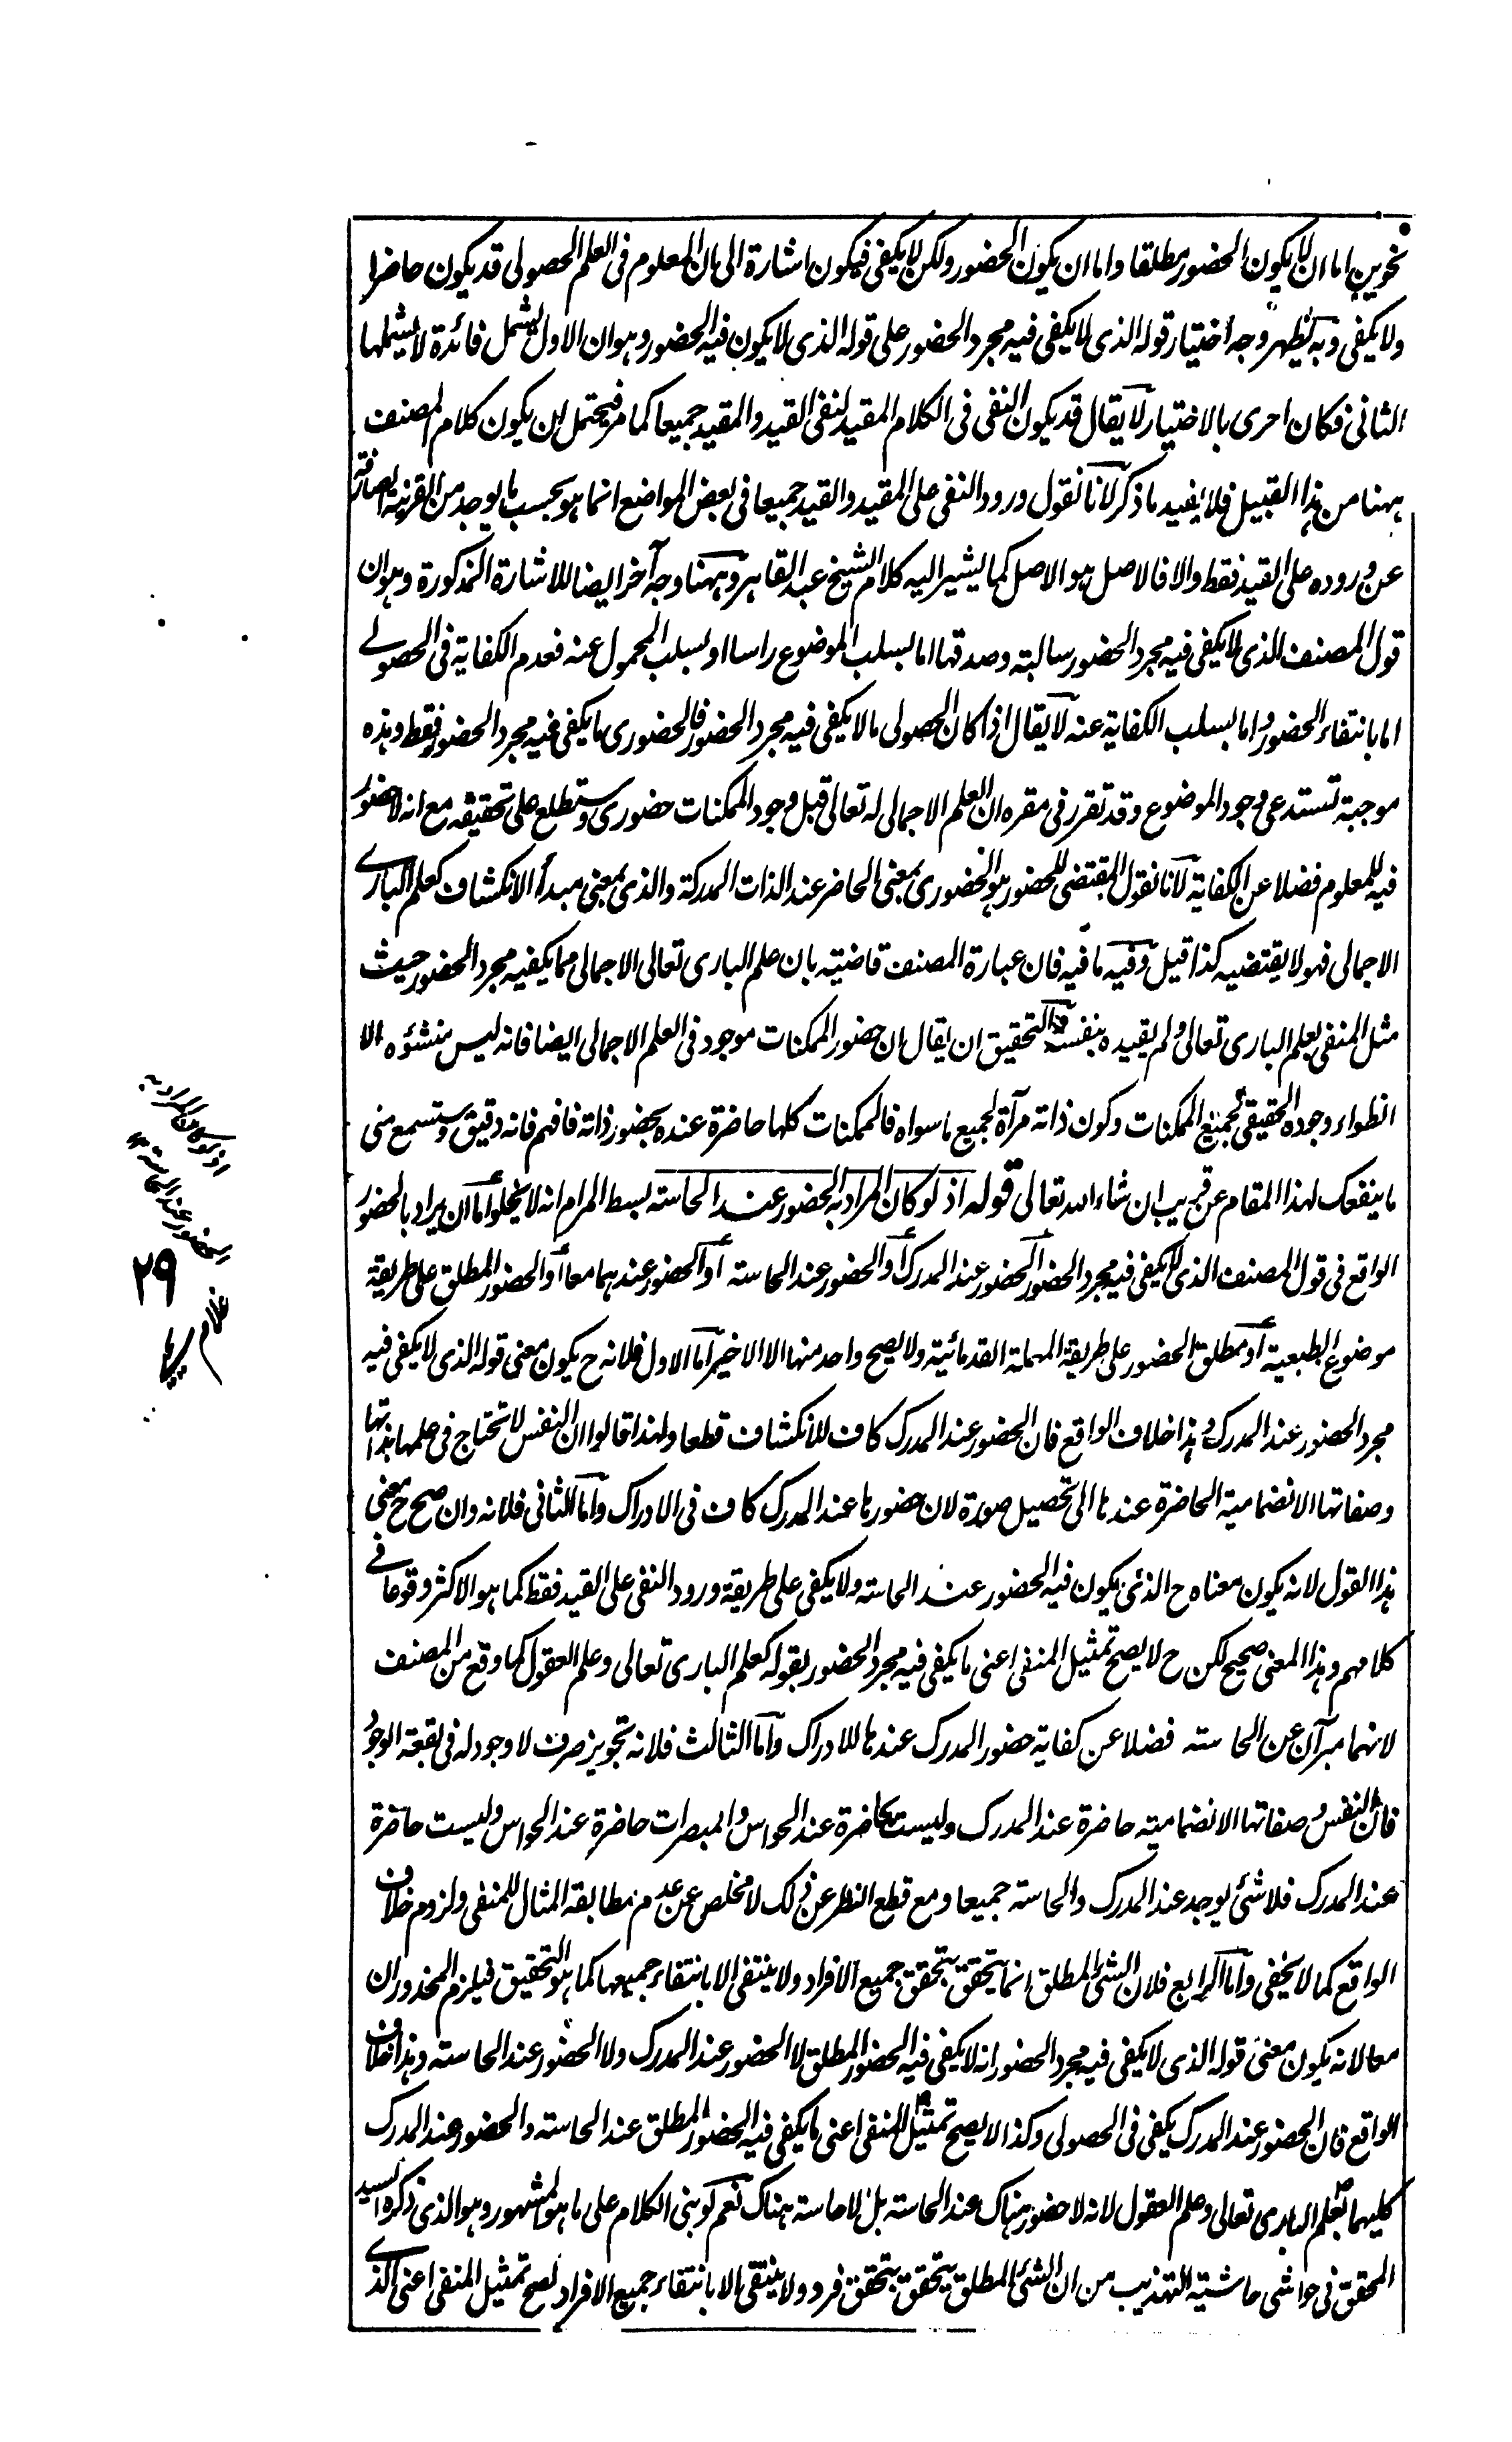 نحوين اما ان لا يكون الحضور مطلقا واما ان يكون الحضور ولكن لا يكفى فيكون اشارة الى ان المعلوم فى العلم الحصولى قد يكون حاضرا
ولا يكفى وبه يظهر وجه اختيار قوله الذى لا يكفى فيه مجرد الحضور على قوله الذى لا يكون فيه الحضور وهو ان الاول يشمل فائدة لا يشملها
الثانى فكان احرى بالاختيار لا يقال قد يكون النفى فى الكلام المقيد لنفى القيد والمقيد جميعا كما مر فيحتمل ان يكون كلام المصنف
ههنا من هذا القبيل فلا يفيد ما ذكر لانا نقول ورود النفى على المقيد والقيد جميعا فى بعض المواضع انما هو بحسب ما يوجد من القرينة الصارفة
عن وروده على القيد فقط والا فالاصل هو الاصل كما يشير اليه كلام الشيخ عبد القاهر وههنا وجه آخر ايضا للاشارة المذكورة وهو ان
قول المصنف الذى لا يكفى فيه مجرد الحضور سالبته وصدقها اما بسلب الموضوع راسا او بسلب المحمول عنه فعدم الكفاية فى الحصولے
اما بانتفاء الحضور واما بسلب الكفاية عنه لا يقال اذا كان الحصولى ما لا يكفى فيه مجرد الحضور فالحضورى ما يكفى فيه مجرد الحضور فقط وهذه
موجبة تستدعى وجود الموضوع وقد تقرر فى مقره ان العلم الاجمالى له تعالى قبل وجود الممكنات حضورى وستطلع على تحقيقه مع انه لا حضور
فيه للمعلوم فضلا عن الكفاية لانا نقول المقتضى للحضور هو الحضورى بمعنى الحاضر عند الذات المدركة والذى بمعنى مبدأ الانكشاف كعلم البارے
الاجمالى فهو لا يقتضيه كذا قيل وفيه ما فيه فان عبارة المصنف قاضيته بان علم البارى تعالى الاجمالى مما يكفيه مجرد الحضور حيث
مثل المنفى بعلم البارى تعالى ولم يقيده بنفسه فالتحقيق ان يقال ان حضور الممكنات موجود فى العلم الاجمالى ايضا فانه ليس منشؤه الا
انطواء وجوده الحقيقى لجميع الممكنات وكون ذاته مرآة لجميع ما سواه فالممكنات كلها حاضرة عنده بحضور ذاته فافهم فانه دقيق وستسمع منى
ما ينفعك لهذا المقام عن قريب ان شاء الله تعالى قوله اذ لو كان المراد به الحضور عند الحاسته بسط المرام انه لا يخلوا اما ان يراد بالحضور
الواقع فى قول المصنف الذى لا يكفى فيه مجرد الحضور الحضور عند المدرك أو الحضور عند الحاسته أو الحضور عندهما معا أو الحضور المطلق على طريقة
موضوع الطبعية أو مطلق الحضور على طريقة المهملة القدمائية ولا يصح واحد منها الا الاخير اما الاول فلانه ح يكون معنى قوله الذى لا يكفى فيه
مجرد الحضور عند المدرك وهذا خلاف الواقع فان الحضور عند المدرك كاف للانكشاف قطعا ولهذا قالوا ان النفس لا تحتاج فى علمها بذاتها
وصفاتها الانضمامية الحاضرة عندها الى تحصيل صورة لان حضورها عند المدرك كاف فى الادراك واما الثانى فلانه وان صح ح معنى
هذا القول لانه يكون معناه ح الذى يكون فيه الحضور عند الحاسته ولا يكفى على طريقة ورود النفى على القيد فقط كما هو الاكثر وقوعا فے
كلامهم وهذا المعنى صحيح لكن ح لا يصح تمثيل المنفى اعنى ما يكفى فيه مجرد الحضور بقوله كعلم البارى تعالى وعلم العقول كما وقع من المصنف
لانهما مبرآن عن الحاسته فضلا عن كفاية حضور المدرك عندها للادراك واما الثالث فلانه تجويز صرف لا وجود له فى بقعة الوجود
فان النفس وصفاتها الانضمامية حاضرة عند المدرك وليست بحاضرة عند الحواس والمبصرات حاضرة عند الحواس وليست حاضرة
عند المدرك فلا شئ يوجد عند المدرك والحاسته جميعا ومع قطع النظر عن ذلك لا مخلص عن عدم مطابقة المثال للمنفى ولزوم خلاف
الواقع كما لا يخفى واما الرابع فلان الشئ المطلق انما يتحقق بتحقق جميع الافراد ولا ينتفى الا بانتفاء جميعها كما هو التحقيق فيلزم المحذوران
معا لانه يكون معنى قوله الذى لا يكفى فيه مجرد الحضور انه لا يكفى فيه الحضور المطلق لا الحضور عند المدرك ولا الحضور عند الحاسته وهذا خلاف
الواقع فان الحضور عند المدرك يكفى فى الحصولى وكذا لا يصح تمثيل المنفى اعنى ما يكفى فيه الحضور المطلق عند الحاسته والحضور عند المدرك
كليهما بعلم البارى تعالى وعلم العقول لانه لا حضور هناك عند الحاسته بل لا حاسته هناك نعم لو بنى الكلام على ما هو المشهور وهو الذى ذكره السيد
المحقق فى حواشى حاشية التهذيب من ان الشئ المطلق يتحقق بتحقق فرد ولا ينتفى الا بانتفاء جميع الافراد لصح تمثيل المنفى اعنى الذے
اذ لو كان المراد به
الحضور عند الحاسته
٢٩
غلام